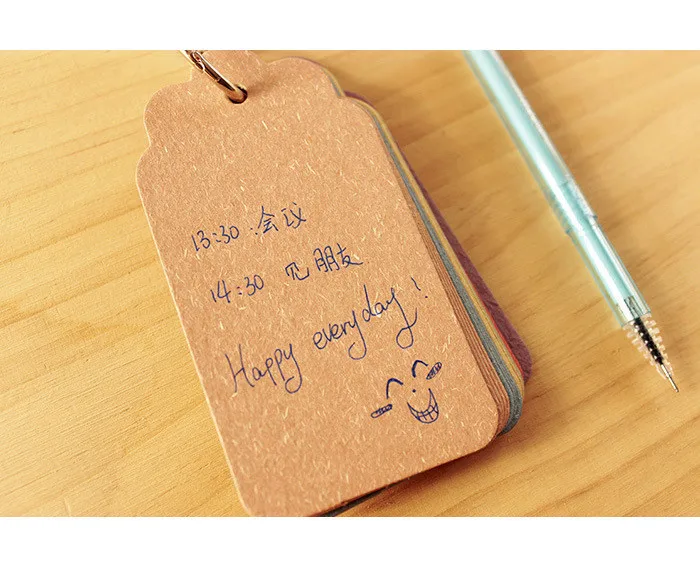 13:30 会议
14:30 见朋友
Happy everyday!